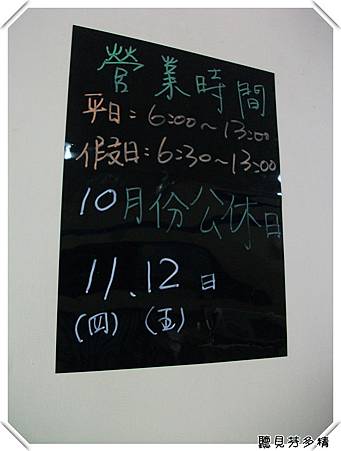 營業時間
平日：6:00～13:00
假日：6:30～13:00
10月份公休日
11、12日
(四) (五)
聽見芬多精